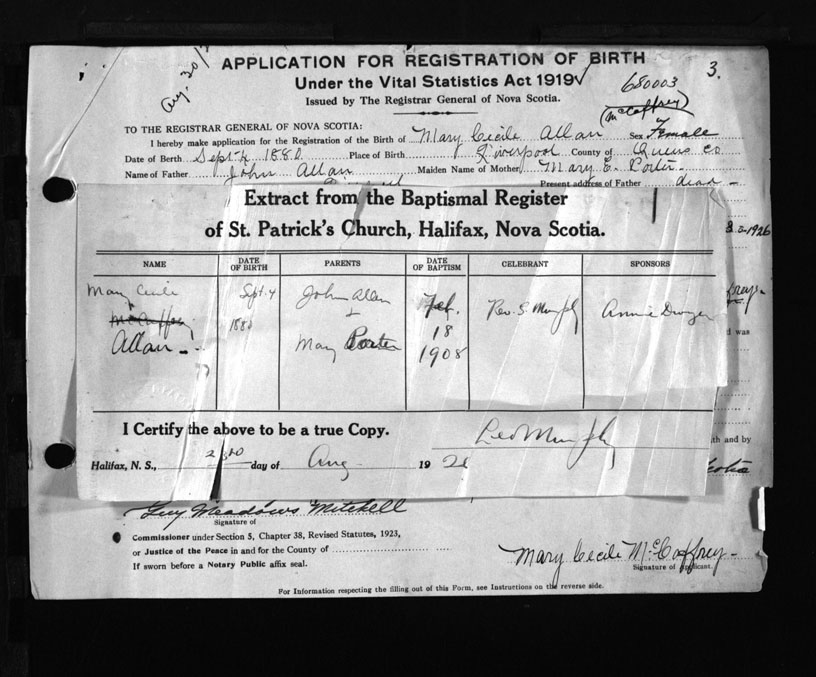 Aug. 30/
APPLICATION FOR REGISTRATION OF BIRTH
3.
Under the Vital Statistics Act 1919
680003
Issued by The Registrar General of Nova Scotia.
(McCaffrey)
TO THE REGISTRAR GENERAL OF NOVA SCOTIA:
I hereby make application for the Registration of the Birth of Mary Cecile Allan Sex Female
Date of Birth Sept 4 1880 Place of Birth Liverpool County of Queens Co
Name of Father John Allan Maiden Name of Mother Mary E. Porter
Present address of Father dead
1926
Extract from the Baptismal Register
of St. Patrick's Church, Halifax, Nova Scotia.
NAME DATE OF BIRTH PARENTS DATE OF BAPTISM CELEBRANT SPONSORS
Mary Cecile Sept. 4 John Allan Feb. Rev. S. Murphy Annie Dwyer
McCaffrey 1880 + 18
Allan Mary Porter 1908
d was
I Certify the above to be a true Copy.
Leo Murphy
th and by
Halifax, N. S., day of Aug 19
Guy Meadows Mitchell
Signature of
Commissioner under Section 5, Chapter 38, Revised Statutes, 1923,
or Justice of the Peace in and for the County of
If sworn before a Notary Public affix seal.
Mary Cecile McCaffrey
Signature of Applicant.
For Information respecting the filling out of this Form, see Instructions on the reverse side.